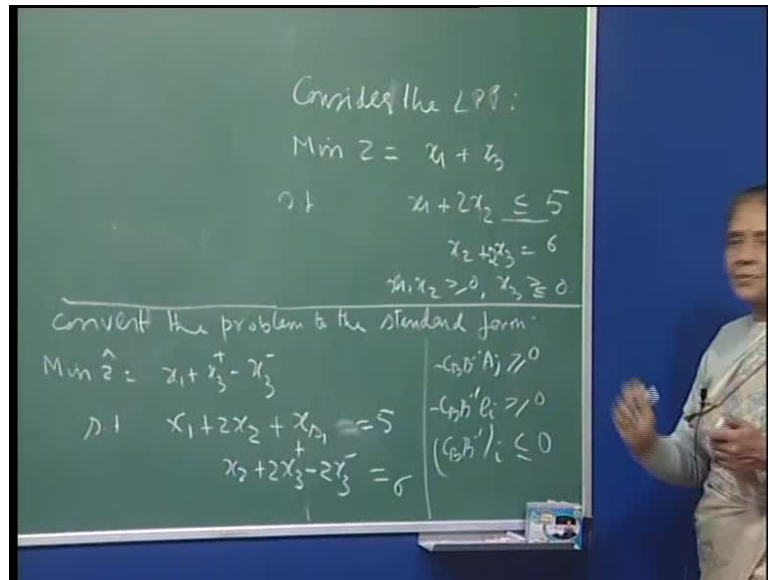 Consider the LPP :
Min Z = x₁ + x₃
s.t x₁ + 2x₂ ≤ 5
x₂ + 2x₃ = 6
x₁, x₂ ≥ 0, x₃ ≥≤ 0
Convert the problem to the standard form.
Min ẑ = x₁ + x₃⁺ - x₃⁻
s.t x₁ + 2x₂ + x_{s₁} = 5
x₂ + 2x₃⁺ - 2x₃⁻ = 6
-C_B B⁻¹ A_j ≥ 0
-C_B B⁻¹ e_i ≥ 0
(C_B B⁻¹)_i ≤ 0